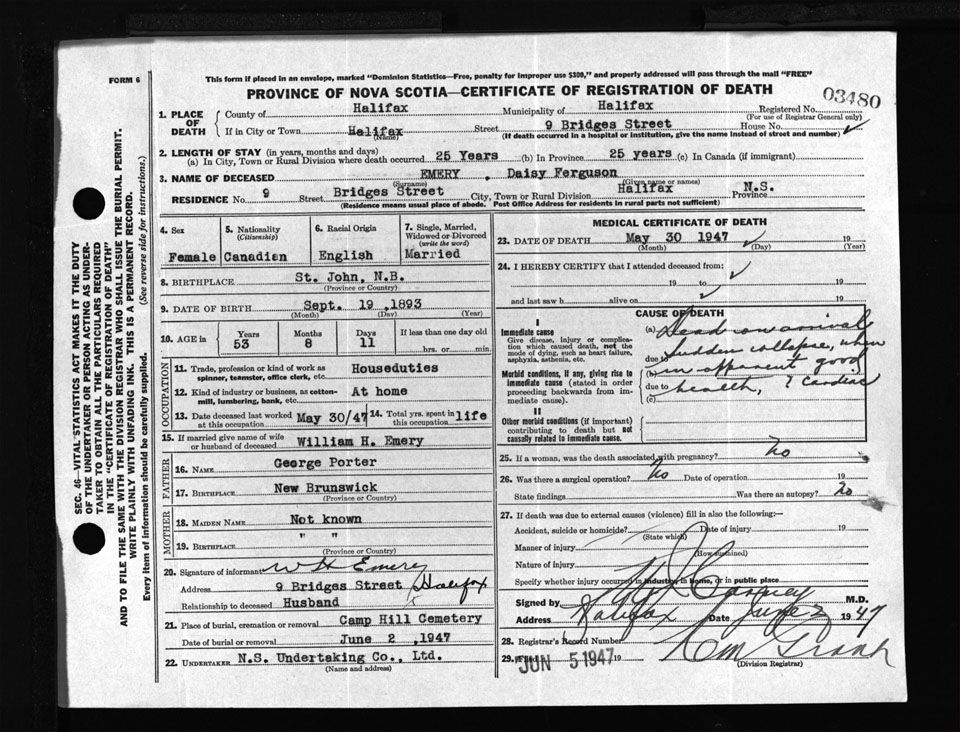 FORM 6
This form if placed in an envelope, marked "Dominion Statistics—Free, penalty for improper use $300," and properly addressed will pass through the mail "FREE"
PROVINCE OF NOVA SCOTIA—CERTIFICATE OF REGISTRATION OF DEATH
03480
1. PLACE OF DEATH
County of Halifax Municipality of Halifax Registered No.
(For use of Registrar General only)
If in City or Town Halifax Street 9 Bridges Street House No.
(Name) (If death occurred in a hospital or institution, give the name instead of street and number)
2. LENGTH OF STAY (in years, months and days)
(a) In City, Town or Rural Division where death occurred 25 Years (b) In Province 25 years (c) In Canada (if immigrant)
3. NAME OF DECEASED EMERY , Daisy Ferguson
(Surname) (Given name or names)
RESIDENCE No. 9 Street Bridges Street City, Town or Rural Division Halifax Province N.S.
(Residence means usual place of abode. Post Office Address for residents in rural parts not sufficient)
4. Sex Female
5. Nationality (Citizenship) Canadian
6. Racial Origin English
7. Single, Married, Widowed or Divorced (write the word) Married
8. BIRTHPLACE St. John, N.B.
(Province or Country)
9. DATE OF BIRTH Sept. 19 1893
(Month) (Day) (Year)
10. AGE in Years 53 Months 8 Days 11 If less than one day old hrs. or min
OCCUPATION
11. Trade, profession or kind of work as spinner, teamster, office clerk, etc. Houseduties
12. Kind of industry or business, as cotten-mill, lumbering, bank, etc. At home
13. Date deceased last worked at this occupation May 30/47
14. Total yrs. spent in this occupation life
15. If married give name of wife or husband of deceased William H. Emery
FATHER
16. NAME George Porter
17. BIRTHPLACE New Brunswick
(Province or Country)
MOTHER
18. MAIDEN NAME Not known
19. BIRTHPLACE " "
(Province or Country)
20. Signature of informant W H Emery
Address 9 Bridges Street Halifax
Relationship to deceased Husband
21. Place of burial, cremation or removal Camp Hill Cemetery
Date of burial or removal June 2 ,1947
22. UNDERTAKER N.S. Undertaking Co., Ltd.
(Name and address)
MEDICAL CERTIFICATE OF DEATH
23. DATE OF DEATH May 30 1947 19
(Month) (Day)
24. I HEREBY CERTIFY that I attended deceased from:
19 to 19
and last saw h alive on 19
CAUSE OF DEATH
I
Immediate cause
Give disease, injury or complication which caused death, not the mode of dying, such as heart failure, asphyxia, asthenia, etc.
Morbid conditions, if any, giving rise to immediate cause (stated in order proceeding backwards from immediate cause).
II
Other morbid conditions (if important) contributing to death but not causally related to immediate cause.
(a) Dead on arrival
due to sudden collapse, when
(b) in apparent good
due to health, ? Cardiac
(c)
25. If a woman, was the death associated with pregnancy? No
26. Was there a surgical operation? No Date of operation 19
State findings Was there an autopsy? No
27. If death was due to external causes (violence) fill in also the following:—
Accident, suicide or homicide? Date of injury 19
(State which)
Manner of injury
(How sustained)
Nature of injury
Specify whether injury occurred in industry, in home, or in public place
Signed by M.D.
Address Halifax Date June 2 1947
28. Registrar's Record Number
29. Filed JUN 5 1947 19
(Division Registrar)
SEC. 46—VITAL STATISTICS ACT MAKES IT THE DUTY
OF THE UNDERTAKER OR PERSON ACTING AS UNDER-
TAKER TO OBTAIN ALL THE PARTICULARS REQUIRED
IN THE "CERTIFICATE OF REGISTRATION OF DEATH"
AND TO FILE THE SAME WITH THE DIVISION REGISTRAR WHO SHALL ISSUE THE BURIAL PERMIT.
WRITE PLAINLY WITH UNFADING INK. THIS IS A PERMANENT RECORD.
Every item of information should be carefully supplied. (See reverse side for instructions.)